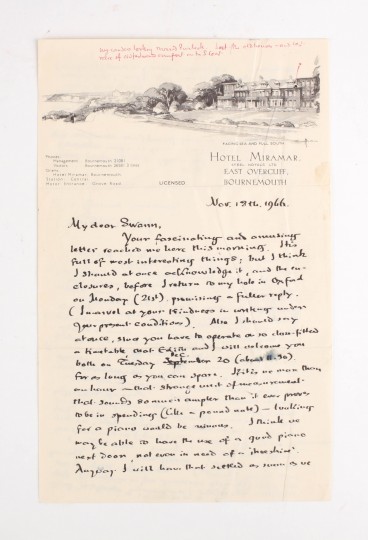 FACING SEA AND FULL SOUTH
HOTEL MIRAMAR
EAST OVERCLIFF,
BOURNEMOUTH
Phones:
Management: Bournemouth
Visitors: Bournemouth
Grams:
Hotel Miramar, Bournemouth
Station: Central
Motor Entrance: Grove Road.
LICENSED
Nov. 18th, 1966.
My dear Swann,
Your fascinating and amusing
letter reached me here this morning. It is
full of most interesting things; but I think
I should at once acknowledge it, and the en-
closures, before I return to my hole in Oxford
on Monday (21st), promising a fuller reply.
(I marvel at your kindness in writing under
your present conditions). Also I should say
at once, since you have to operate on so close-fitted
a timetable that Edith and I will welcome you
both on Tuesday Dec. 20 (about 11.30).
for as long as you can spare. If it is no more than
an hour – that strange unit of measurement
that sounds so much ampler than it ever proves
to be in spending (like a pound note) – looking
for a piano would be ruinous. I think we
may be able to have the use of a good piano
next door, not even in need of a
Anyway I will have that settled as soon as we